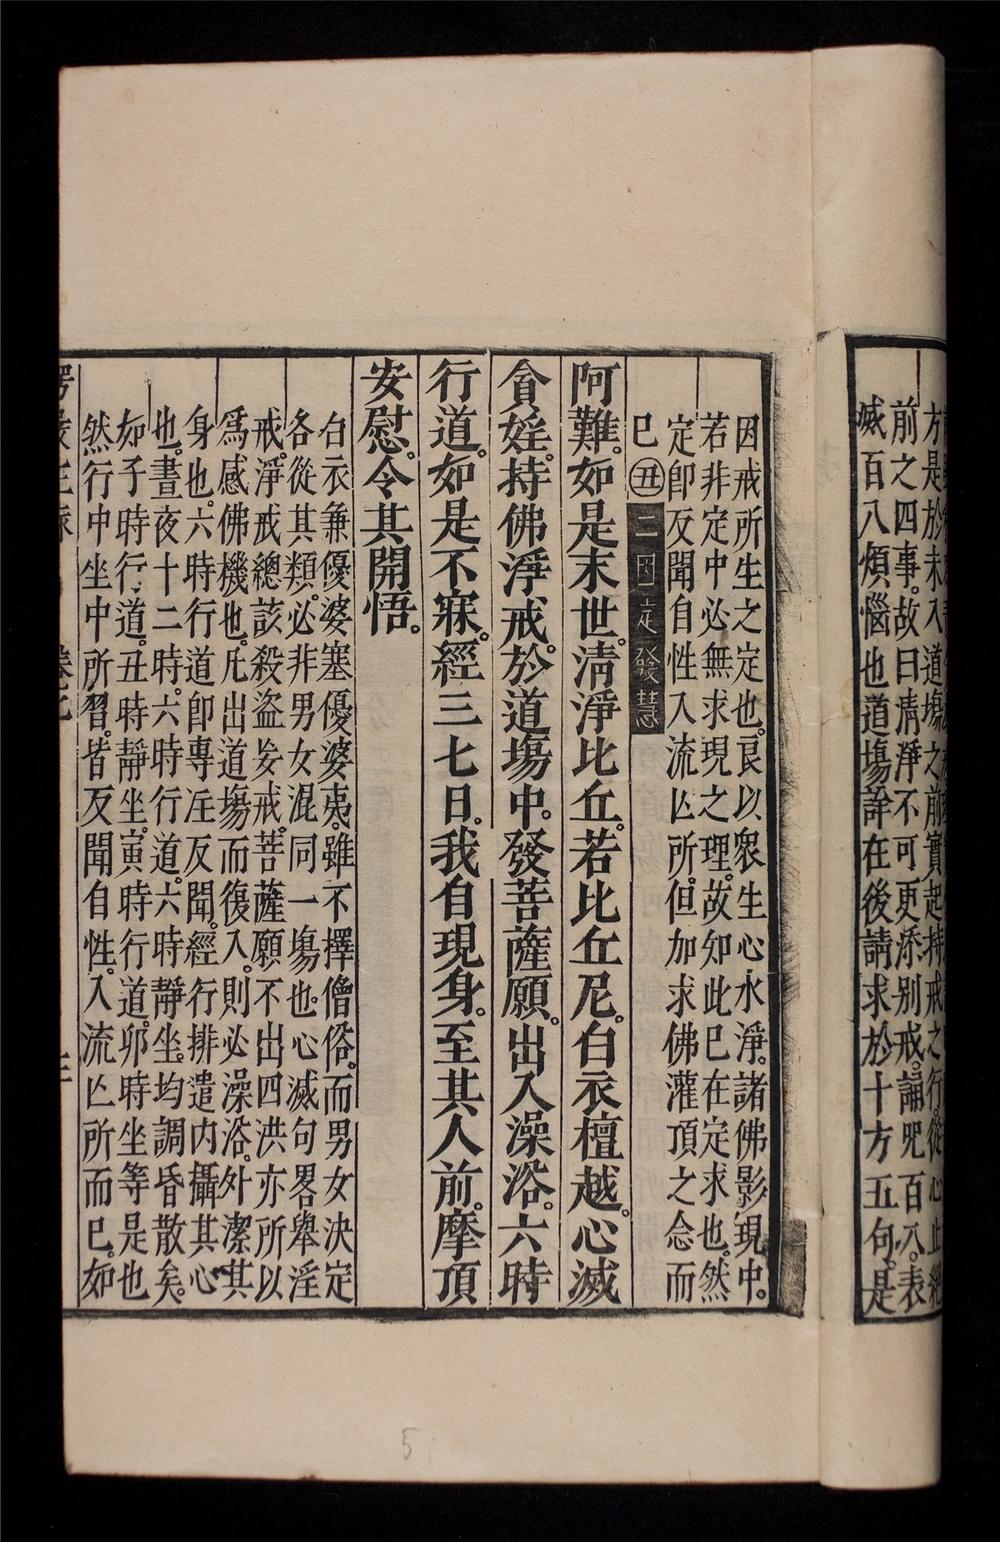 方是於未入道場之前實起持戒之行從心止絕
前之四事。故曰清淨不可更添別戒。誦呪百八。表
滅百八煩惱也道場詮在後請求於十方五句。是
因戒所生之定也。良以眾生心水淨。諸佛影現中。
若非定中必無求現之理。故知此已在定求也。然
定即反聞自性入流亾所。但加求佛灌頂之念而
已㊄二因定發慧
阿難。如是末世。清淨比丘。若比丘尼。白衣檀越。心滅
貪婬。持佛淨戒。於道場中。發菩薩願。出入澡浴。六時
行道。如是不寐。經三七日。我自現身。至其人前。摩頂
安慰。令其開悟。
白衣兼優婆塞優婆夷。雖不擇僧俗。而男女決定
各從其類。必非男女混同一場也。心滅句畧舉淫
戒。淨戒總該殺盗妄戒。菩薩願不出四洪亦所以
爲感佛機也。凡出道場而復入。則必澡浴。外潔其
身也。六時行道即專注反聞。經行排遣內攝其心
也。晝夜十二時。六時行道。六時靜坐。均調昏散矣。
如子時行道。丑時靜坐。寅時行道。卯時坐等是也
然行中坐中所習。皆反聞自性。入流亾所而已。如